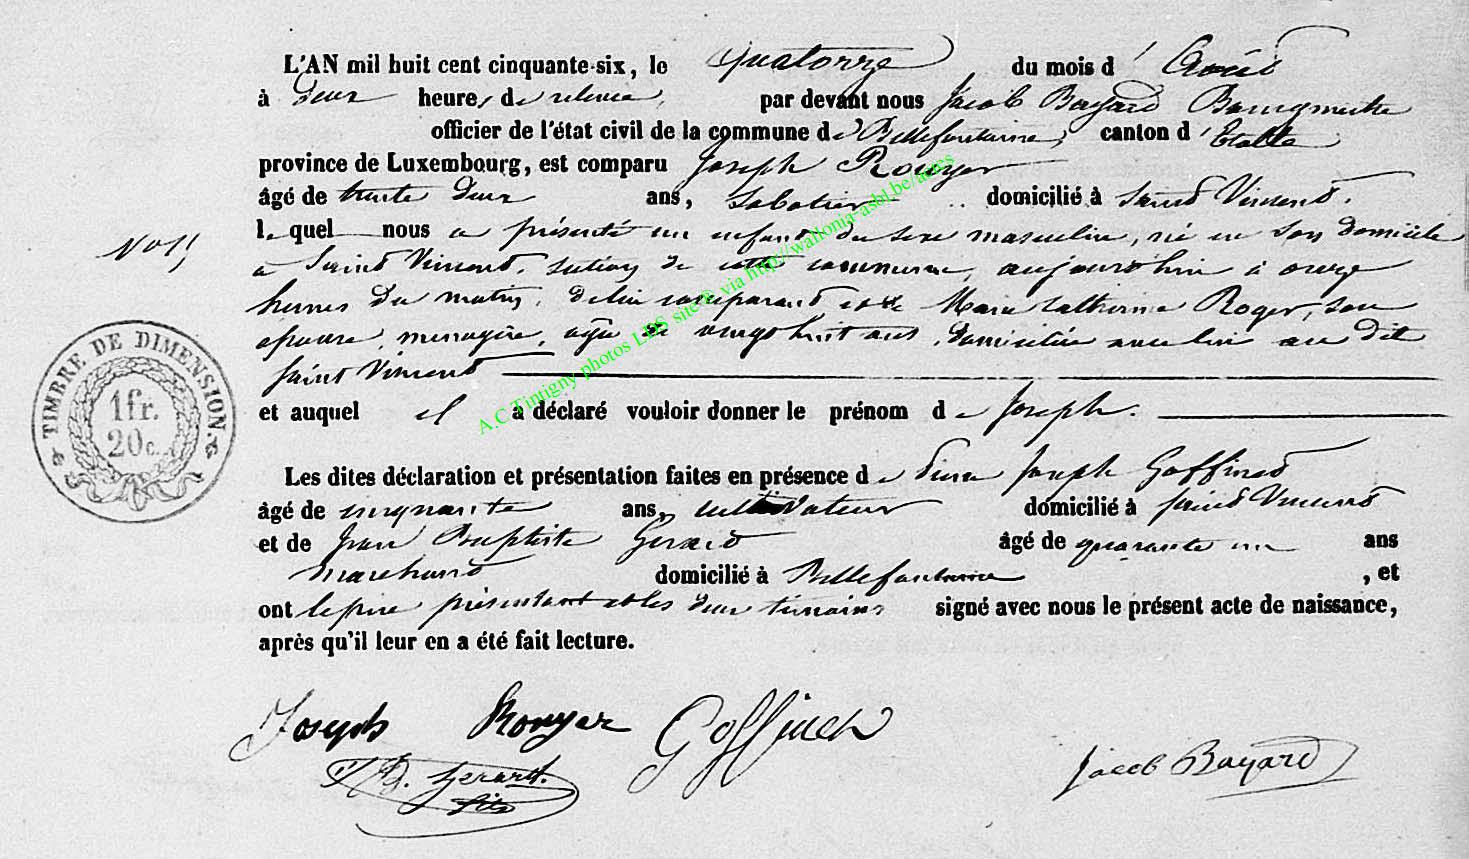 L'AN mil huit cent cinquante-six, le quatorze du mois d' Août
à deux heures de relevée, par devant nous Jacob Bayard Bourgmestre
officier de l'état civil de la commune de Bellefontaine, canton d' Etalle
province de Luxembourg, est comparu Joseph Rouyer
âgé de trente deux ans, sabotier domicilié à Saint Vincent,
lequel nous a présenté un enfant du sexe masculin, né en son domicile
N.o 15
à Saint Vincent, section de cette commune, aujourd'hui à onze
heures du matin, de lui comparant et de Marie Catherine Roger, son
épouse, ménagère, agée de vingt huit ans, domiciliée avec lui au dit
Saint Vincent
et auquel il a déclaré vouloir donner le prénom de Joseph.
Les dites déclaration et présentation faites en présence de Joseph Goffinet
âgé de cinquante ans, cultivateur domicilié à Saint Vincent
et de Jean Baptiste Gérard âgé de quarante un ans
marchand domicilié à Bellefontaine , et
ont le père présentant et les deux témoins signé avec nous le présent acte de naissance,
après qu'il leur en a été fait lecture.
Joseph Rouyer Goffinet
J B. Gerard. fils
Jacob Bayard
TIMBRE DE DIMENSION.
1 fr.
20 c.
A.C Tintigny photos LDS site © via http://wallonia-asbl.be/actes